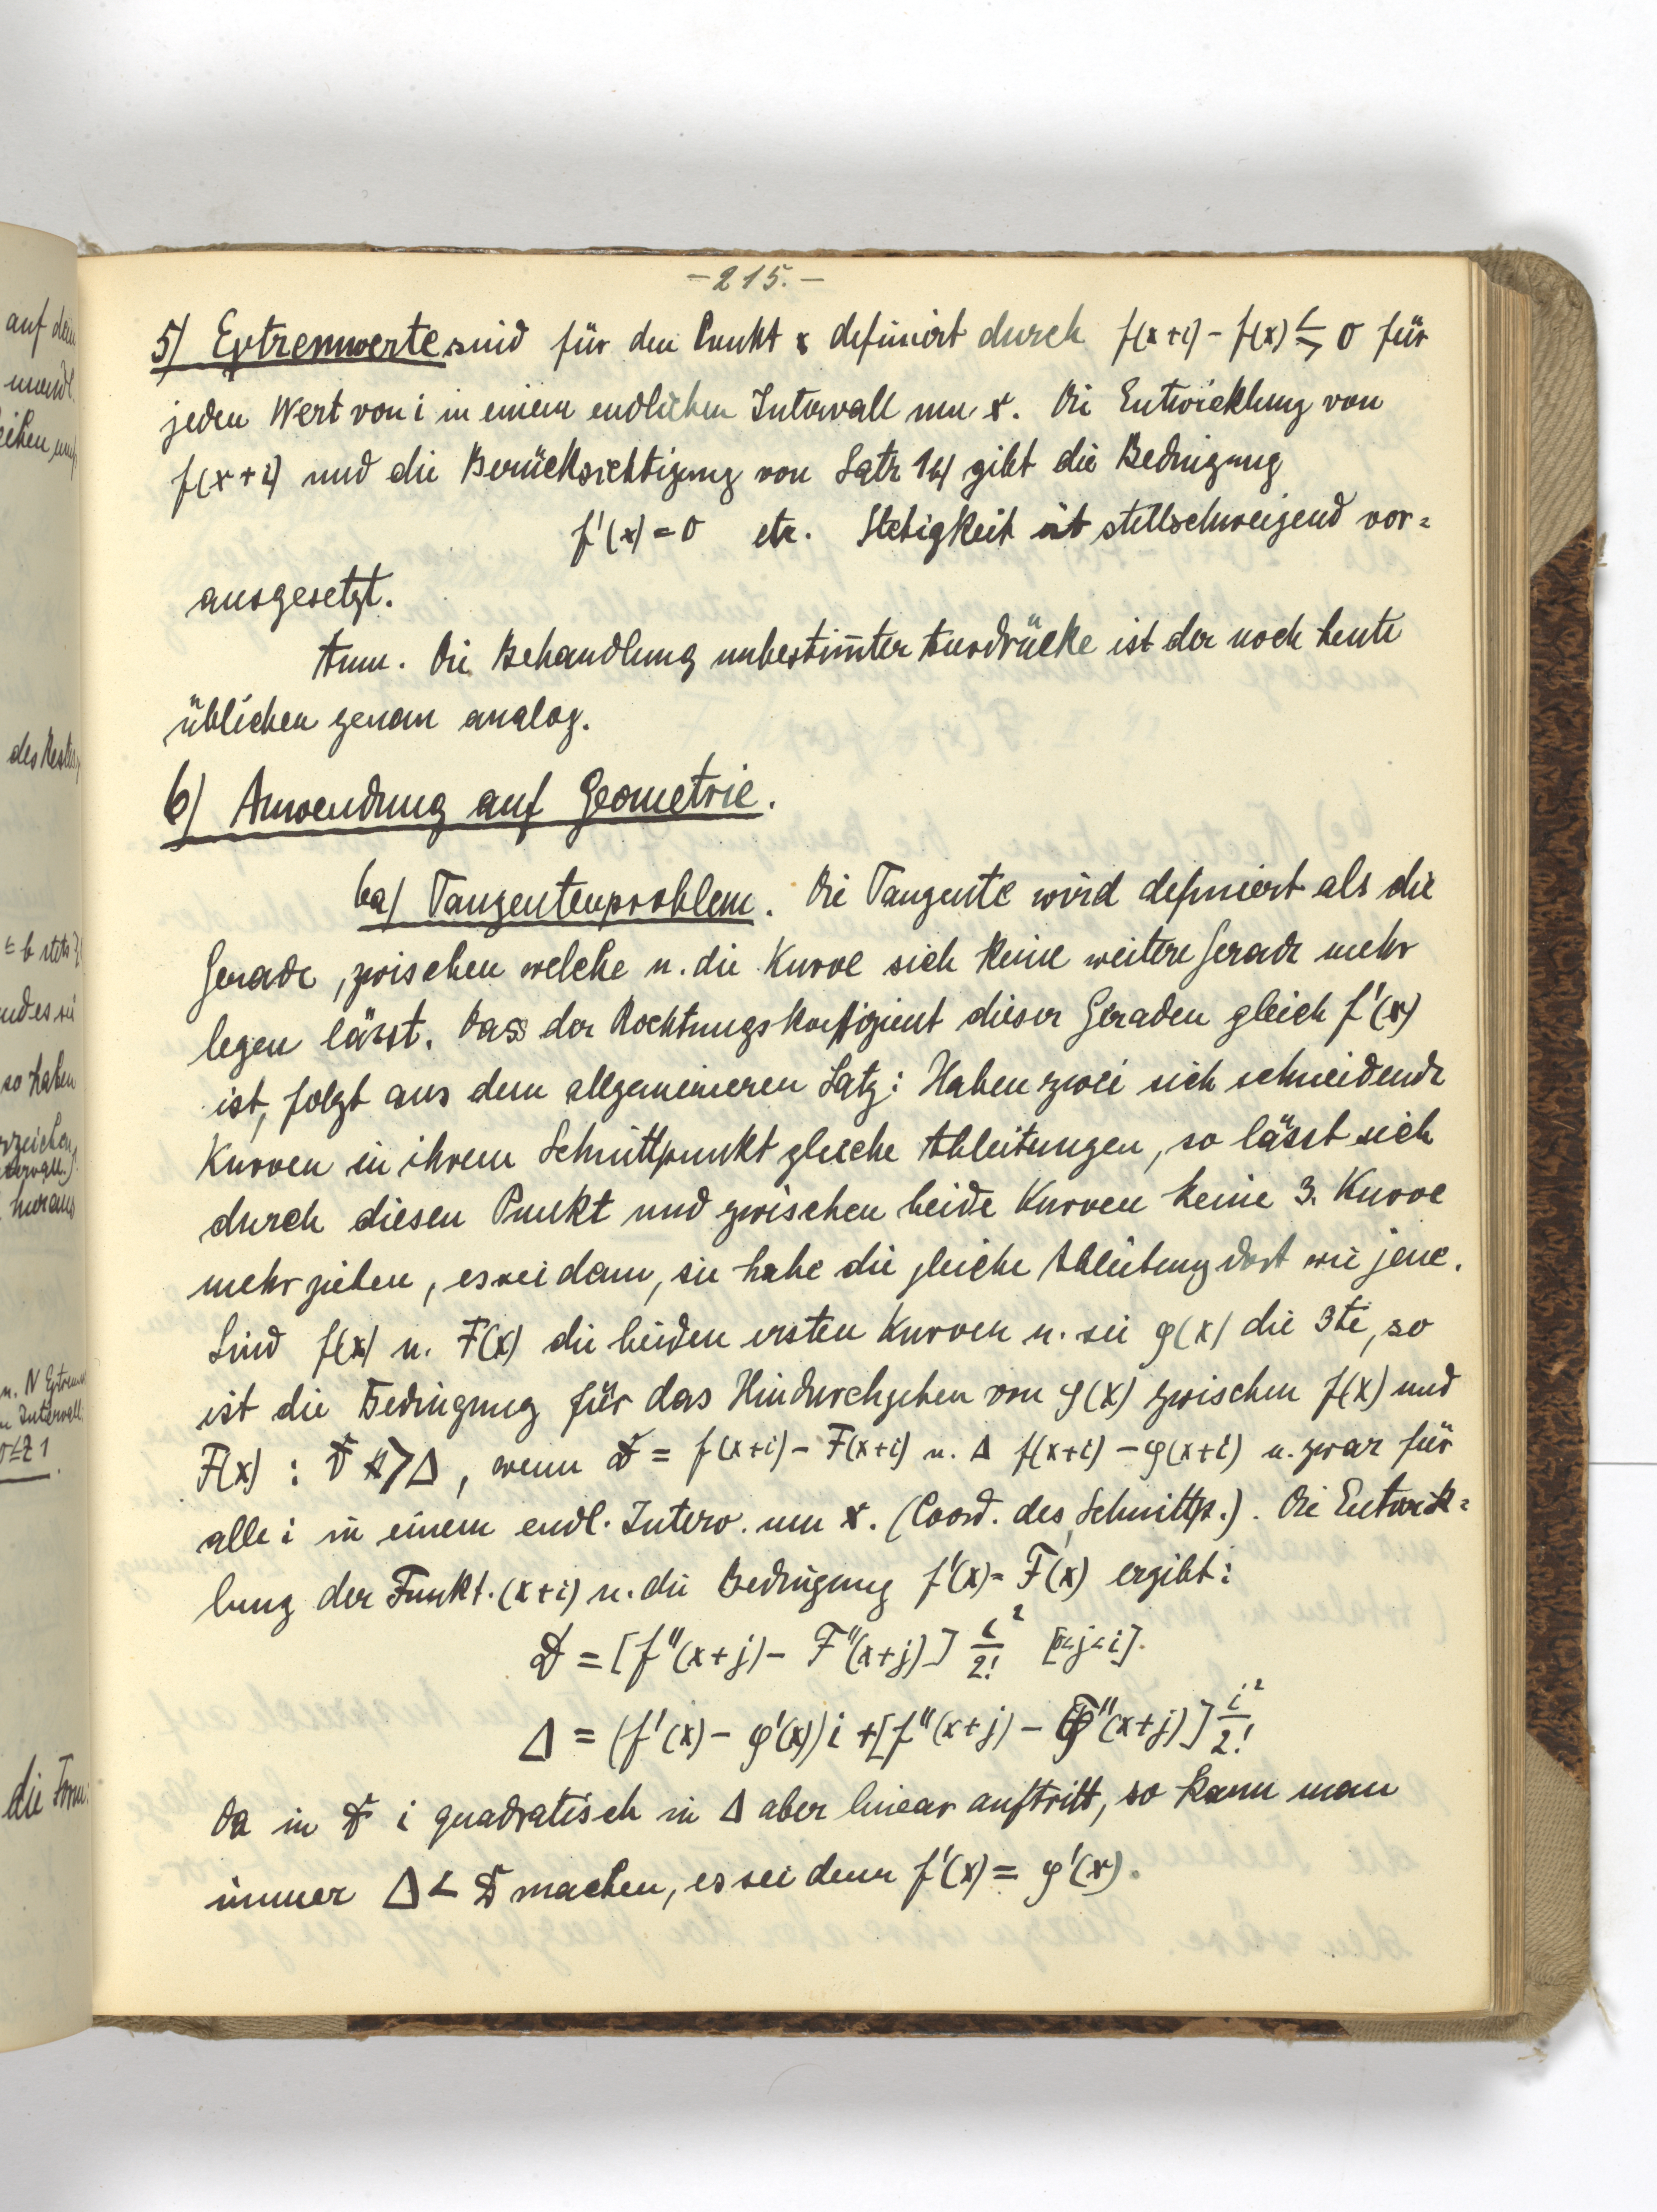 - 215. -
5) Extremwerte sind für den Punkt x definiert durch f(x+i) - f(x) ≶ 0 für
jeden Wert von i in einem endlichen Intervall um x. Die Entwicklung von
f(x+i) und die Berücksichtigung von Satz 1b) gibt die Bedingung
f'(x) = 0 etc. Stetigkeit ist stillschweigend vor=
ausgesetzt.
Anm. Die Behandlung unbestim̄ter Ausdrücke ist der noch heute
üblichen genau analog.
6) Anwendung auf Geometrie.
6a) Tangentenproblem. Die Tangente wird definiert als die
Gerade, zwischen welche u. die Kurve sich keine weitere Gerade mehr
legen lässt. Dass der Richtungskoeffizient dieser Geraden gleich f'(x)
ist, folgt aus dem allgemeineren Satz: Haben zwei sich schneidende
Kurven in ihrem Schnittpunkt gleiche Ableitungen, so lässt sich
durch diesen Punkt und zwischen beide Kurven keine 3. Kurve
mehr ziehen, es sei denn, sie habe die gleiche Ableitung dort wie jene.
Sind f(x) u. F(x) die beiden ersten Kurven u. sei φ(x) die 3te, so
ist die Bedingung für das Hindurchgehen von φ(x) zwischen f(x) und
F(x) : D > Δ, wenn D = f(x+i) - F(x+i) u. Δ f(x+i) - φ(x+i) u. zwar für
alle i in einem endl. Interv. um x. (Coord. des Schnittp.). Die Entwick=
lung der Funkt. (x+i) u. die Bedingung f'(x) = F'(x) ergibt:
D = [f''(x+j) - F''(x+j)] i²/2! [0<j<i].
Δ = (f'(x) - φ'(x)) i + [f''(x+j) - φ''(x+j)] i²/2!
Da in D i quadratisch in Δ aber linear auftritt, so kann man
immer Δ < D machen, es sei denn f'(x) = φ'(x).
auf dem
des Restes
≤ b stets
und es sei
so haben
hieraus
die Form: